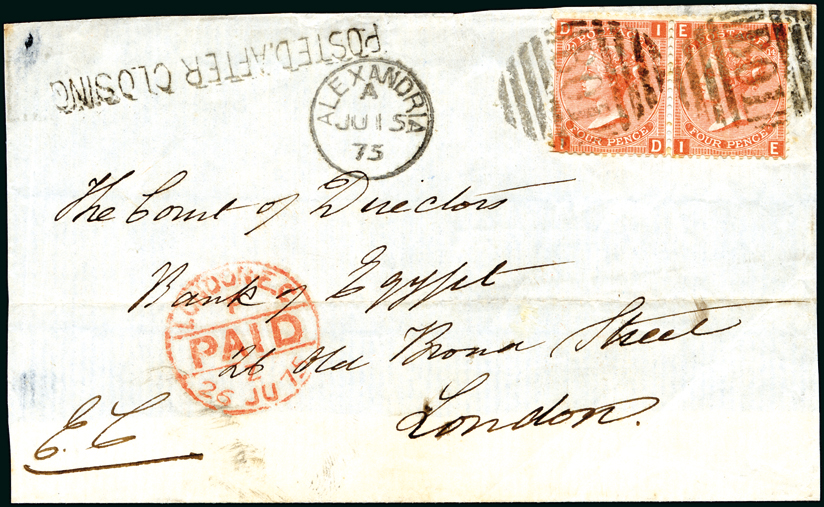 POSTED. AFTER CLOSING
ALEXANDRIA
A
JU 15
75
D I
POSTAGE
FOUR PENCE
I D
E I
POSTAGE
FOUR PENCE
I E
B01
B01
The Court of Directors
Bank of Egypt
26 Old Broad Street
London.
E. C
LONDON. E.C
PAID
26 JU 75